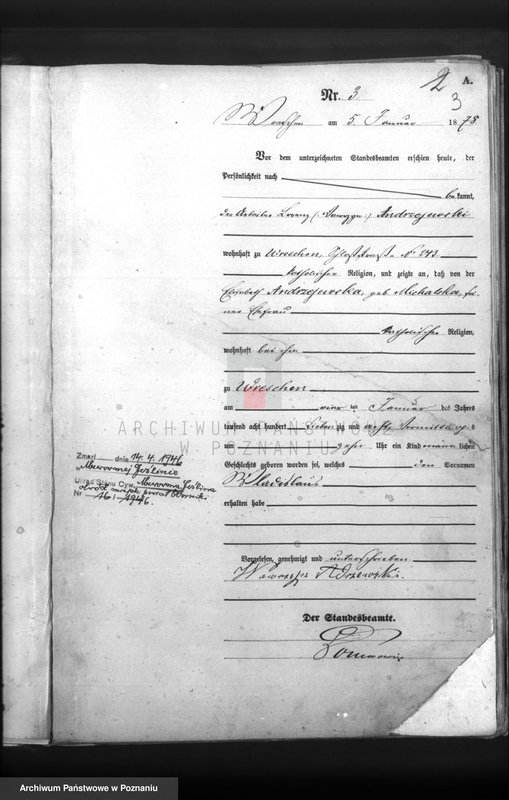 2 A.
3
Nr. 3
Wreschen am 5. Januar 1878
Vor dem unterzeichneten Standesbeamten erschien heute, der
Persönlichkeit nach
bekannt,
der Arbeiter Lorenz (Wawrzyn) Andrzejewski
wohnhaft zu Wreschen, Schloßstraße No 243
katholischer Religion, und zeigte an, daß von der
Elisabeth Andrzejewska, geb Michalska, sei-
ner Ehefrau
katholischer Religion,
wohnhaft bei ihm
zu Wreschen
am Januar des Jahres
tausend acht hundert sieben zig und acht Vormittags
um zehn Uhr ein Kind männlichen
Geschlechts geboren worden sei, welches den Vornamen
Wladislaus
erhalten habe
Vorgelesen, genehmigt und unterschrieben
Wawrzyn
Der Standesbeamte.
Zmarł dnia 14. 4. 1946
Murowanej Goślinie
Urząd Stanu Cyw. Murowana Goślina
Nr 16/1946.
ARCHIWUM PAŃSTWOWE
W POZNANIU
Archiwum Państwowe w Poznaniu